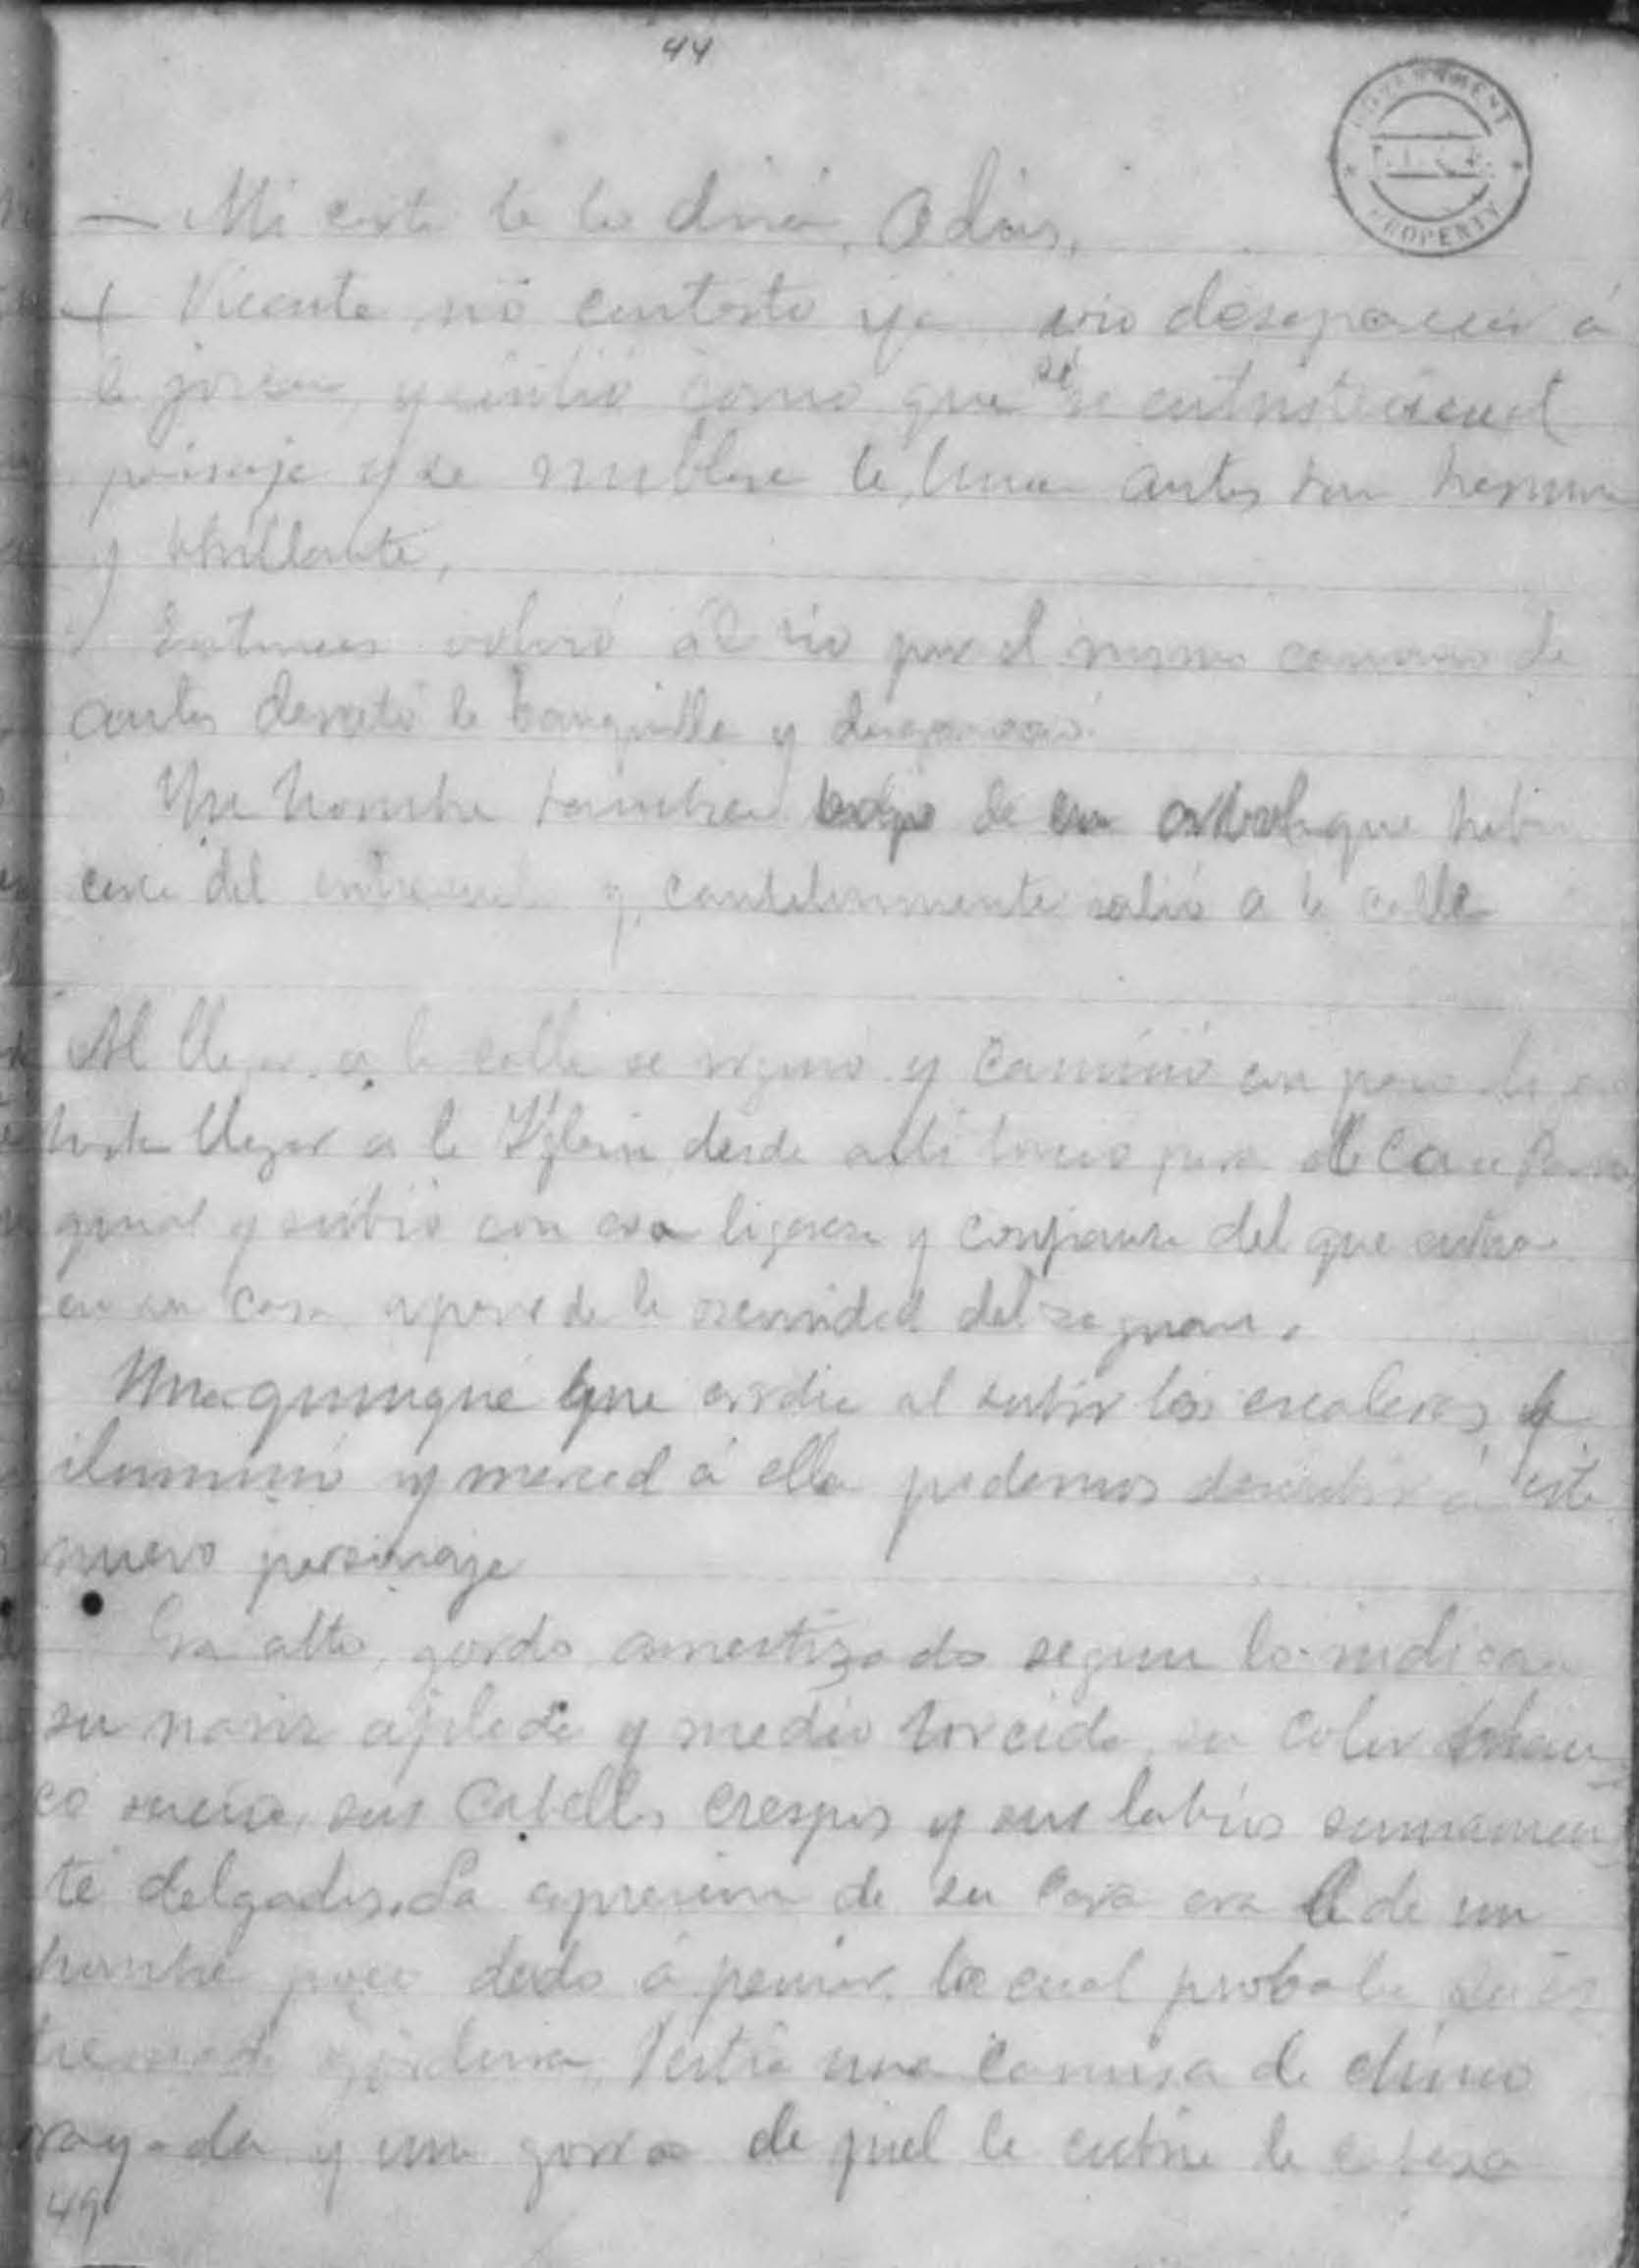 44
GOVERNMENT
PROPERTY
— Mi carta te lo dirá, Adios,
Vicente no contestó ya vio desaparecer á
la joven, y sintió como que se entristeciera el
paisaje y se nublase la luna antes tan hermosa
y brillante,
Entonces volvió al rio por el mismo camino de
antes desató la banquilla y desapareció.
Un hombre tambien bajó de un arbol que habia
cerca del y, cautelosamente salió a la calle
Al llegar a la calle se y caminó con paso
hasta llegar a la Yglesia desde alli torció para
y subió con esa ligereza y confianza del que entra
en su casa apesar de la oscuridad del zaguan.
Una quinqué que ardia al subir las escaleras le
iluminó y merced á ella podemos describir á este
nuevo personaje
Era alto, gordo amestizado segun lo indica
su nariz aplada y medio torcida, su color blan-
co sucio, sus cabellos crespos y sus labios sumamen-
te delgados. La expresion de su cara era la de un
hombre poco dado á pensar, lo cual probaba su es
tremada gordura. Vestia una camisa de chino
rayada y una gorra de piel le cubria la cabeza
49